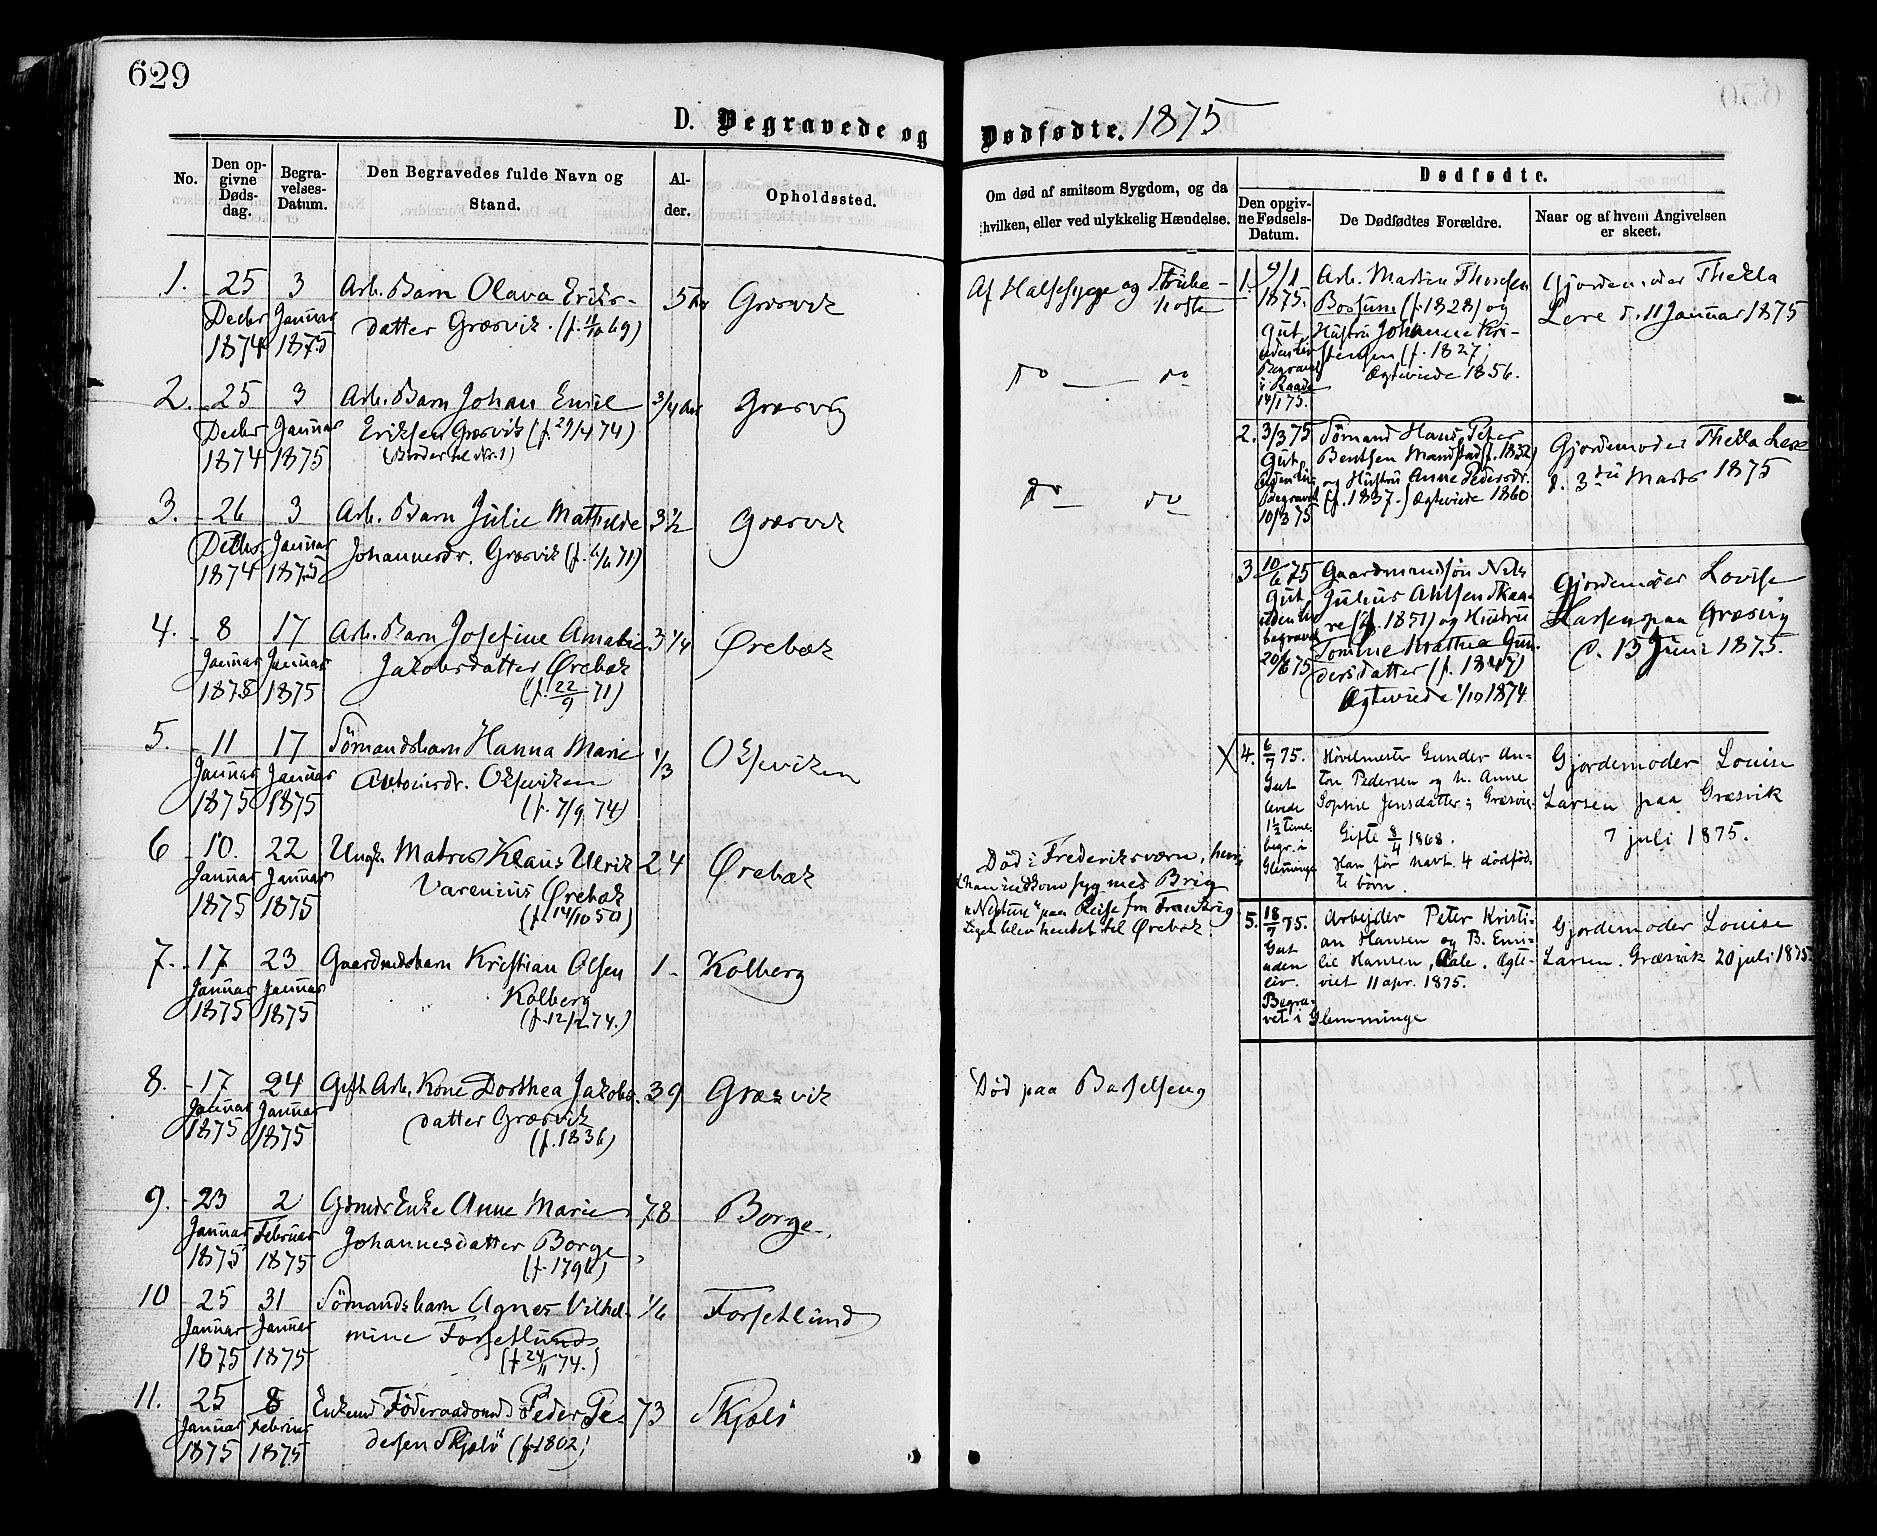 629
D. Begravede og Dødfødte. 1875
No.
Den op-
givne
Døds-
dag.
Begra-
velses-
Datum.
Den Begravedes fulde Navn og
Stand.
Al-
der.
Opholdssted.
Om død af smitsom Sygdom, og da
hvilken, eller ved ulykkelig Hændelse.
Dødfødte.
Den opgiv-
ne Fødsels-
Datum.
De Dødfødtes Forældre.
Naar og af hvem Angivelsen
er skeet.
1. 25 Decbr 1874
3 Januar 1875
Arb. Barn Olava Eriks-
datter Græsvik. (f. 11/10 69)
5 Aar
Græsvik
Af Halssyge og Strube-
hoste
2. 25 Decbr 1874
3 Januar 1875
Arb. Barn Johan Emil
Eriksen Græsvik (f. 29/4 74)
(Broder til Nr. 1)
3/4 Aar
Græsvig
Do — do
3. 26 Decbr. 1874
3 Januar 1875
Arb. Barn Julie Mathilde
Johannesdr. Græsvik (f. 6/6 71)
3 1/2
Græsvik
Do — do
4. 8 Januar 1875
17 Januar 1875
Arb. Barn Josefine Amalie
Jakobsdatter Ørebæk
(f. 22/9 71)
3 1/4
Ørebæk
5. 11 Januar 1875
17 Januar 1875
Sømandsbarn Hanna Marie
Antonsdr. Oxeviken
(f. 7/9 74)
1/3
Oxeviken
6 10. Januar 1875
22 Januar 1875
Ungk. Matros Klaus Ulrik
Varenius Ørebæk
(f. 14/10 50)
24
Ørebæk
Død i Frederiksværn, hvor
han indkom syg med Brig
"Neptun" paa Reise fra Frankrig
Liget blev hentet til Ørebæk.
7. 17 Januar 1875
23 Januar 1875
Gaardmdsbarn Kristian Olsen
Kolberg
(f. 12/2 74.)
1
Kolberg
8. 17 Januar 1875
24 Januar 1875
Gift Arb. Kone Dorthea Jakobs-
datter Græsvik
(f. 1836)
39
Græsvik
Død paa Barselseng
9. 23 Januar 1875
2 Februar 1875
Gdmds Enke Anne Marie
Johannesdatter Borge
(f. 1796)
78
Borge
10 25 Januar 1875
31 Januar 1875
Sømandsbarn Agnes Vilhel-
mine Forsetlund
(f. 24/11 74.)
1/6
Forsetlund
11. 25 Januar 1875
8 Februar 1875
Enkemd Føderaadsmd Peder Pe-
dersen Skjælø (f. 1802)
73
Skjælø
1. 9/1 1875.
Gut,
uden Liv
Begravet
i Raade
14/1 75.
Arb. Martin Thorsen
(f. 1828) og
Hustru Johanne Kri-
stensen (f. 1827)
Ægteviede 1856.
Gjordemoder Thekla
Lere d. 11 Januar 1875
2. 3/3 75
Gut,
uden Liv
Begravet
10/3 75
Sømand Hans Peter
Bentsen Mandstad (f. 1832)
og Hustru Anne Pedersdr.
(f. 1837.) Ægteviede 1860
Gjordemoder Thekla Lere
d. 3die Marts 1875
3 10/6 75
Gut,
uden Liv
begravet
20/6 75
Gaardmandssøn Nils
Julius Ahlsen Skaa-
re (f. 1851) og Hustru
Tomine Mathea Gun-
dersdatter (f. 1847)
Ægteviede 1/10 1874
Gjordemoder Lovise
Larsen paa Græsvig
d. 13 Juni 1875.
X 4. 6/7 75.
Gut
levede
1 1/2 time.
begr. i
Glemminge
Høvlemester Gunder An-
ton Pedersen og h. Anne
Sophie Jensdatter, Græsvig.
Gifte 8/4 1868.
Han før havt 4 dødfød-
te børn.
Gjordemoder Louise
Larsen paa Græsvik
7 juli 1875.
5. 18/7 75.
Gut
uden
liv.
Begra-
vet i Glemminge
Arbejder Peter Kristi-
an Hansen og B. Emi-
lie Hansen, Aale. Ægte-
viet 11 apr. 1875.
Gjordemoder Louise
Larsen. Græsvik 20 juli 1875.